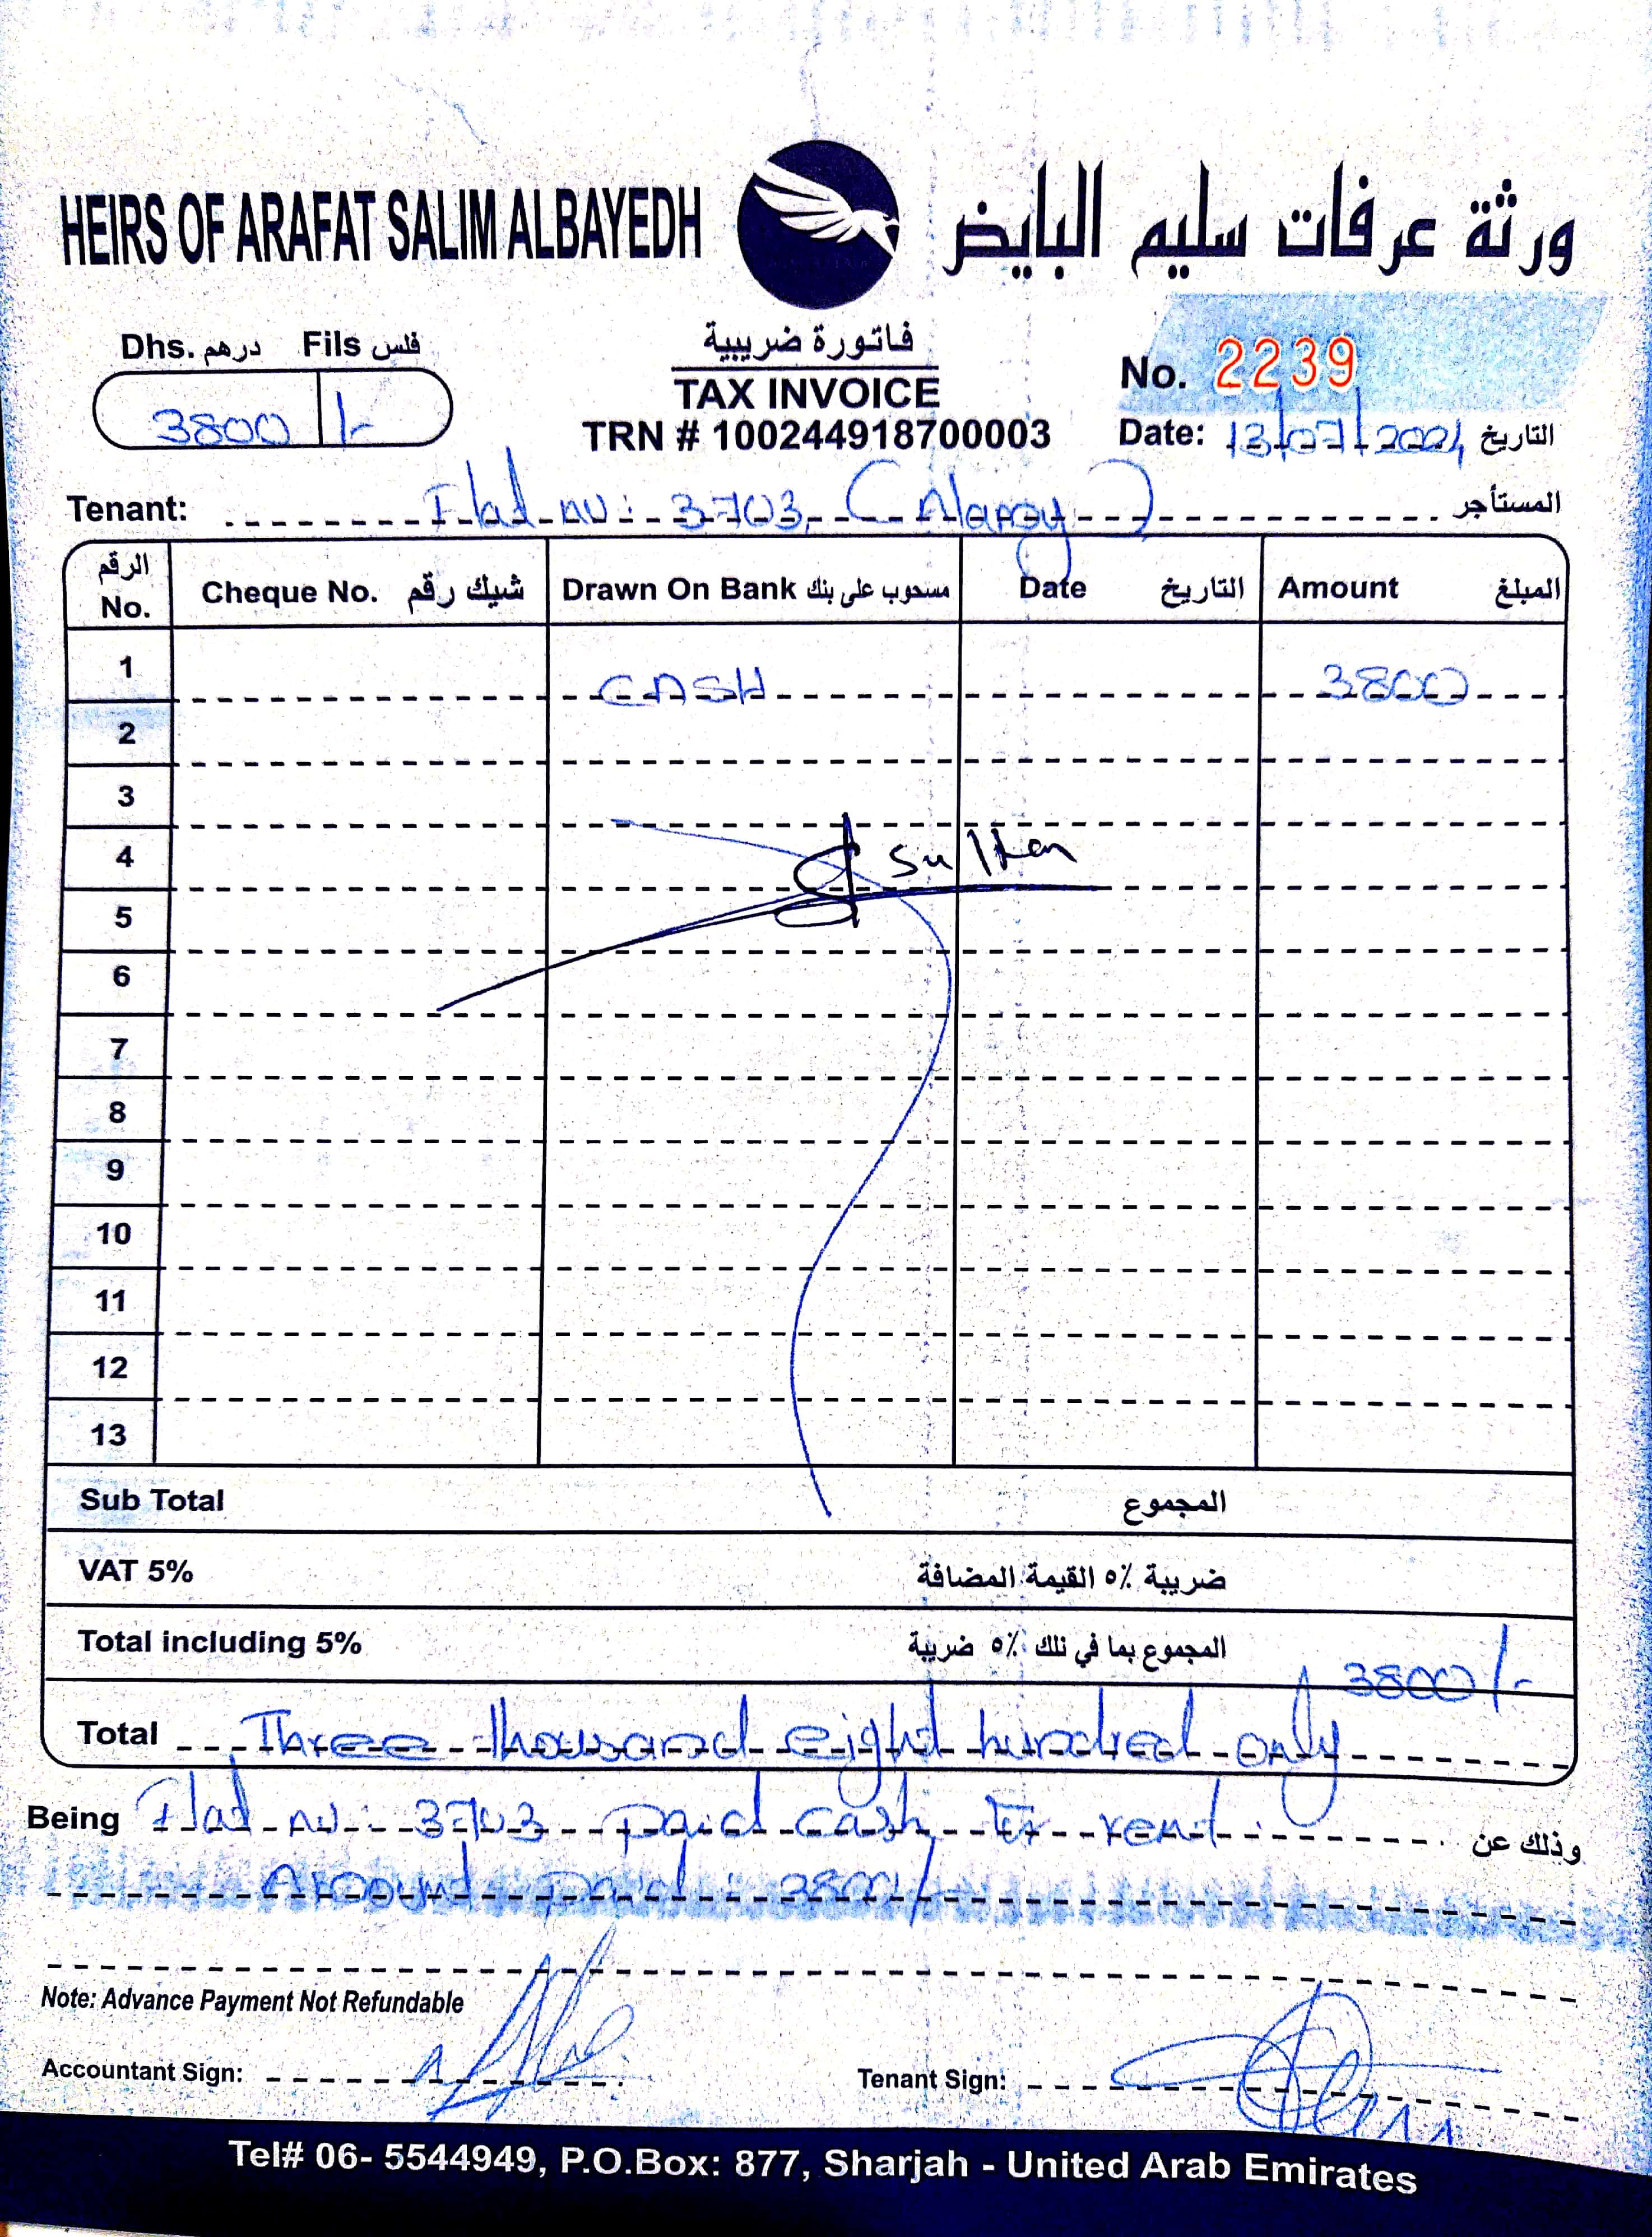 HEIRS OF ARAFAT SALIM ALBAYEDH ورثة عرفات سليم البايض
Dhs. درهم Fils فلس
3800 /-
فاتورة ضريبية
TAX INVOICE
TRN # 100244918700003
No. 2239
Date: 13/07/2021 التاريخ
Tenant: Flat no: 3703 ( ) المستأجر
الرقم No. Cheque No. شيك رقم Drawn On Bank مسحوب على بنك Date التاريخ Amount المبلغ
1 CASH 3800
2
3
4 Sultan
5
6
7
8
9
10
11
12
13
Sub Total المجموع
VAT 5% ضريبة ٥٪ القيمة المضافة
Total including 5% المجموع بما في ذلك ٥٪ ضريبة 3800/-
Total Three thousand eight hundred only
Being Flat no: 3703 paid cash for rent وذلك عن
Amount paid: 3800/-
Note: Advance Payment Not Refundable
Accountant Sign: Tenant Sign:
Tel# 06- 5544949, P.O.Box: 877, Sharjah - United Arab Emirates